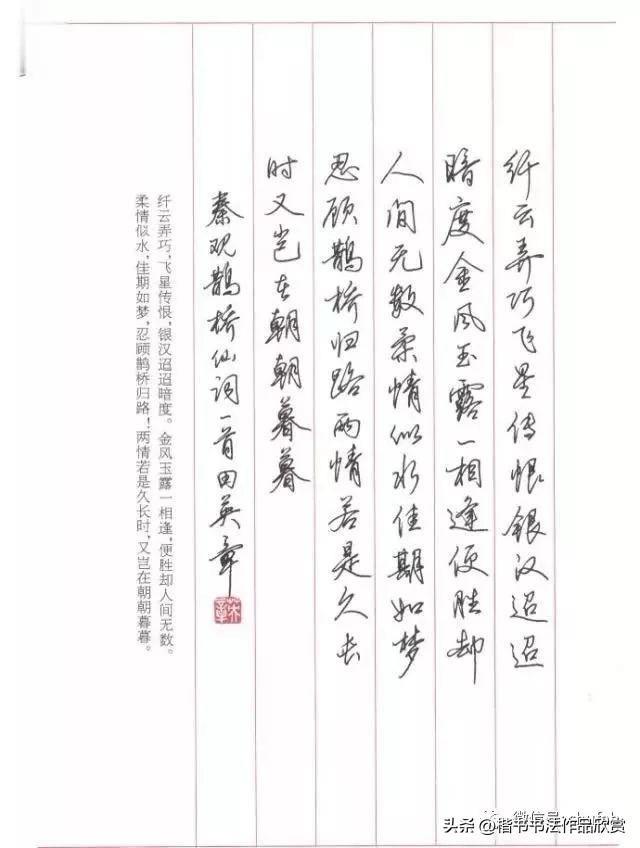 纤云弄巧飞星传恨银汉迢迢
暗度金风玉露一相逢便胜却
人间无数柔情似水佳期如梦
忍顾鹊桥归路两情若是久长
时又岂在朝朝暮暮
秦观鹊桥仙词一首田英章
纤云弄巧，飞星传恨，银汉迢迢暗度。金风玉露一相逢，便胜却人间无数。
柔情似水，佳期如梦，忍顾鹊桥归路！两情若是久长时，又岂在朝朝暮暮。
头条@楷书书法作品欣赏